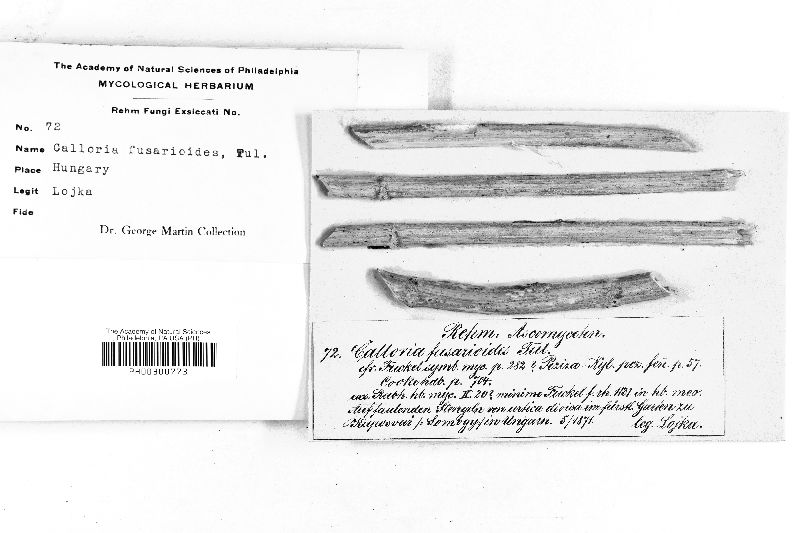 The Academy of Natural Sciences of Philadelphia
MYCOLOGICAL HERBARIUM
Rehm Fungi Exsiccati No.
No. 72
Name Calloria fusarioides, Tul.
Place Hungary
Legit Lojka
Fide
Dr. George Martin Collection
The Academy of Natural Sciences
Philadelphia, PA USA (PH)
PH00800223
Rehm. Ascomyceten.
72. Calloria fusarioides Tul.
cfr. Fuckel symb. myc. p. 282? Peziza p. 57.
Cooke hdb. p. 704.
exs. Rabh. hb. myc. II. 20? minime Fuckel f. rh. in hb. meo.
Auf faulenden Stengeln von urtica dioica im fürstl. Garten zu
in Ungarn. 5/1871. leg. Lojka.